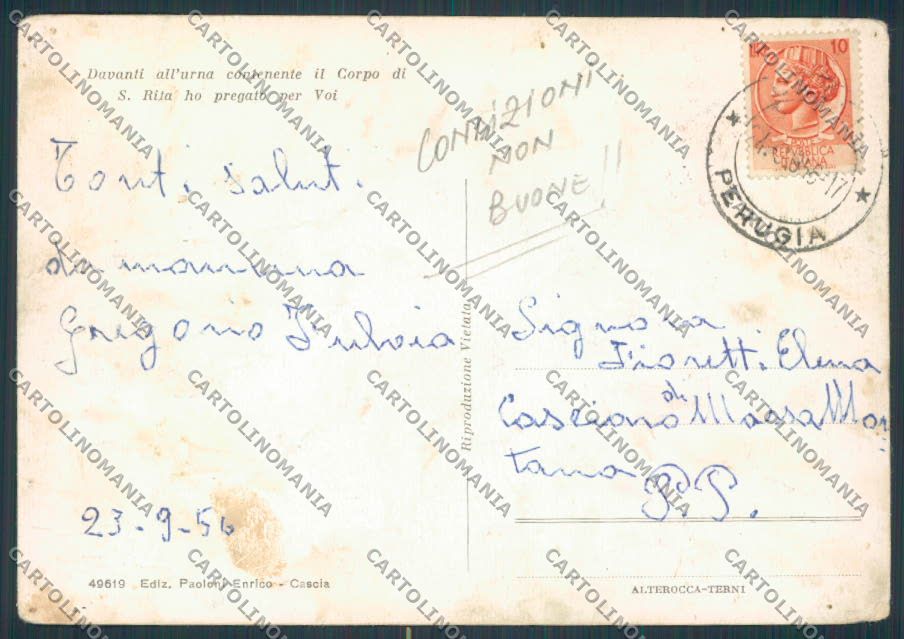 Davanti all'urna contenente il Corpo di
S. Rita ho pregato per Voi
Tonti saluti
da mamma
Gregorio Fulvia
23-9-56
49619 Ediz. Paoloni Enrico - Cascia
Riproduzione Vietata
CONDIZIONI
NON
BUONE!!
10
POSTE
REPVBBLICA
ITALIANA
PERUGIA
Signora
Fioretti Elena
Casciano di Massa Mar
tana
P.G.
ALTEROCCA-TERNI
CARTOLINOMANIA